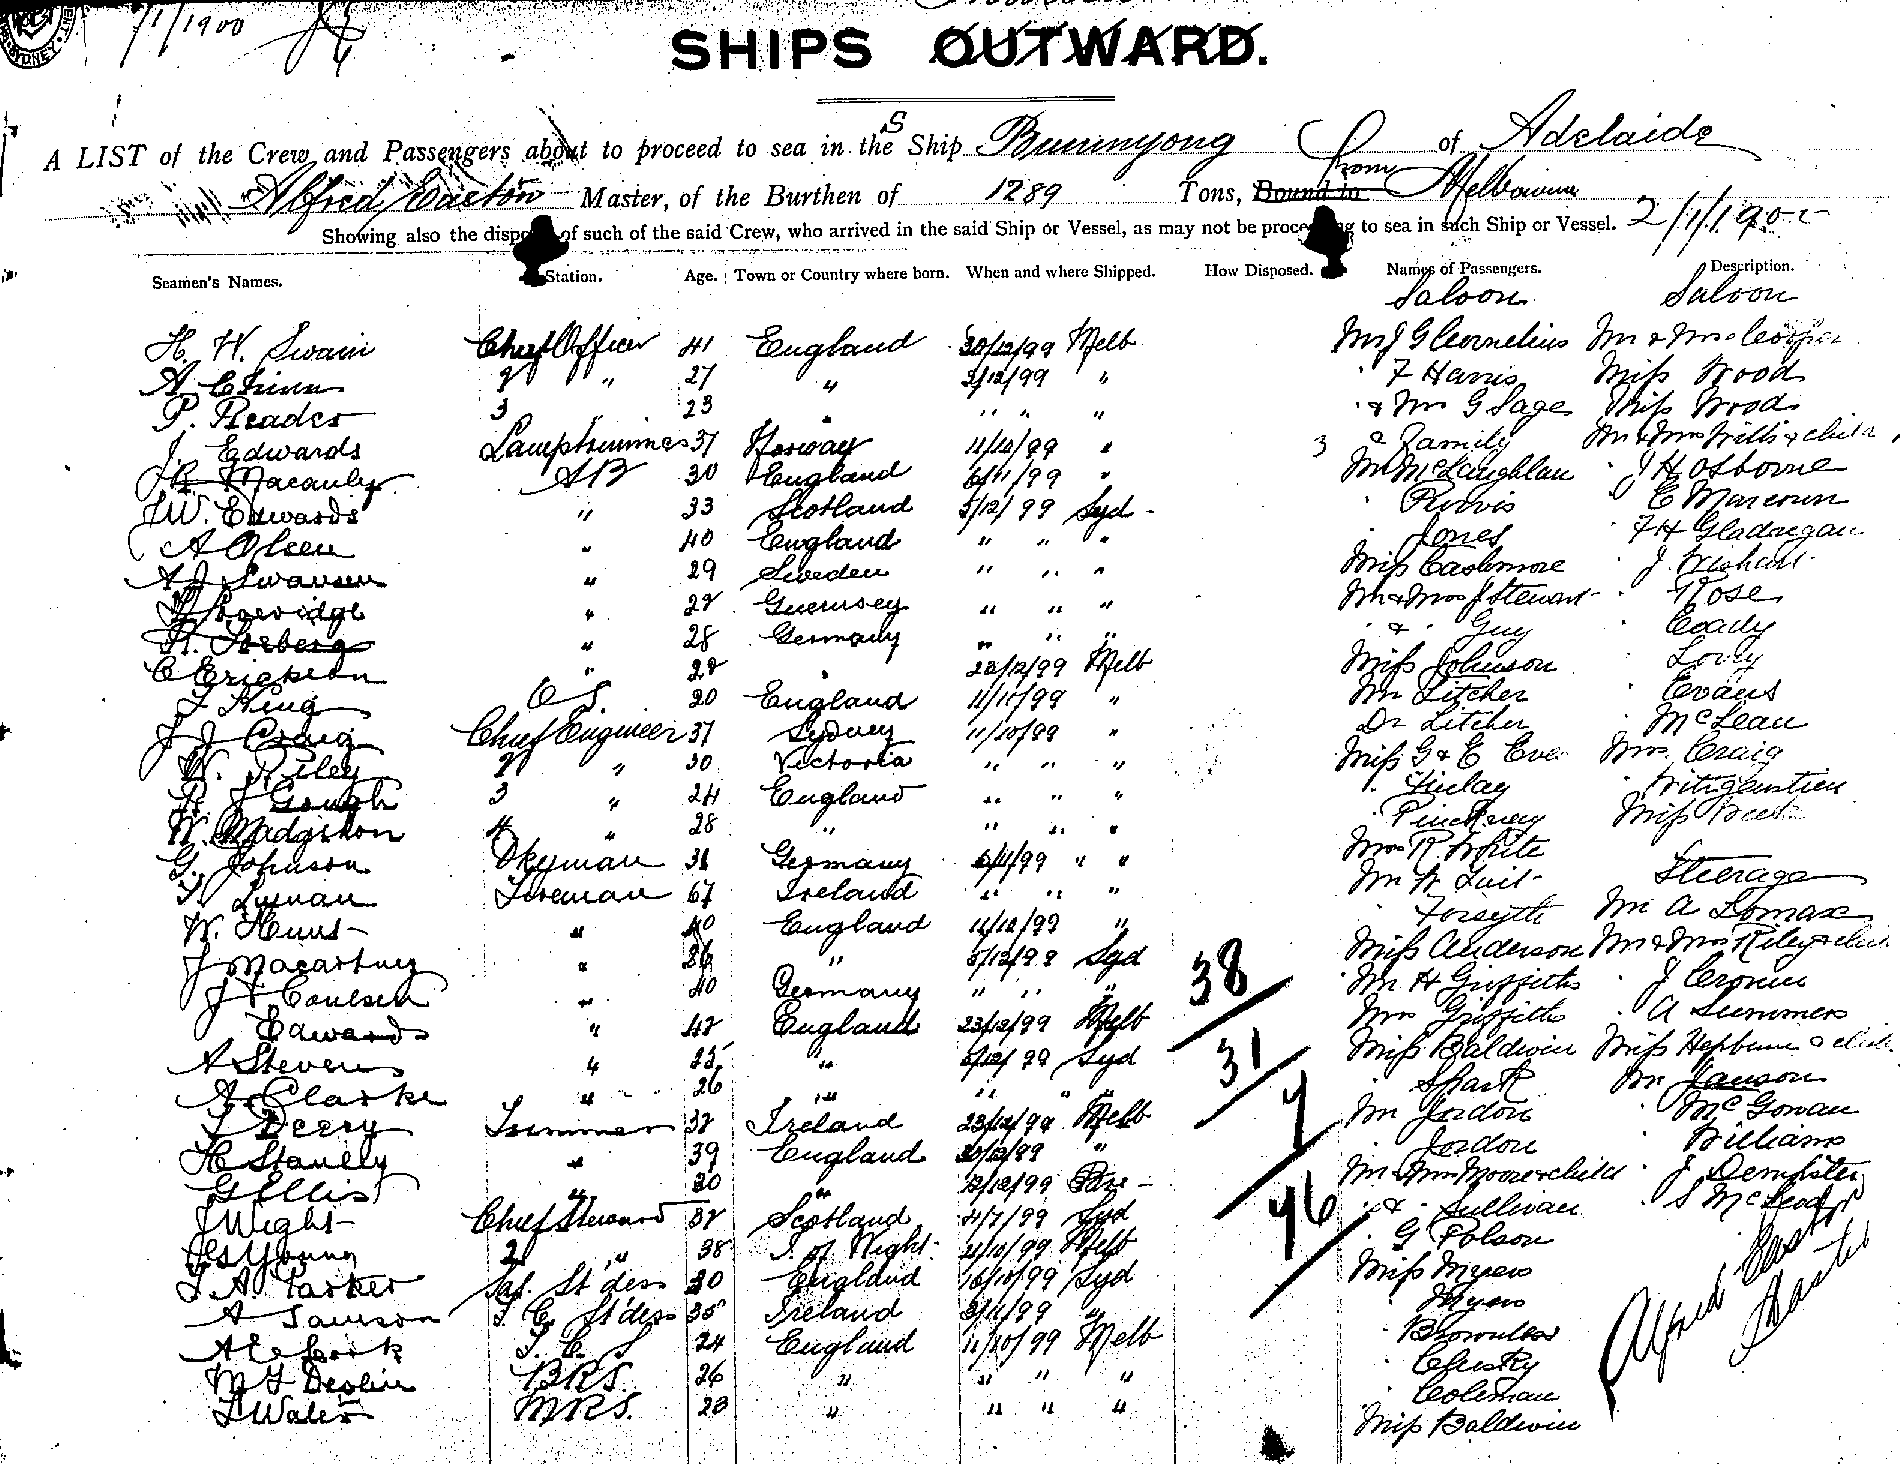 7/1/1900
SHIPS OUTWARD.
A LIST of the Crew and Passengers about to proceed to sea in the S Ship Buninyong of Adelaide
Alfred Easton Master, of the Burthen of 1289 Tons, Bound to From Melbourne
Showing also the dispo of such of the said Crew, who arrived in the said Ship or Vessel, as may not be proceeding to sea in such Ship or Vessel. 2/1/1900
Seamen's Names. Station. Age. Town or Country where born. When and where Shipped. How Disposed. Names of Passengers. Description.
Saloon Saloon
H. W. Swain Chief Officer 41 England 30/12/99 Melb Mr J G Cornelius Mr & Mrs Cooper
A Chinn 2 " 27 " 2/12/99 " " F Harris Miss Wood
P. Reader 3 " 23 " " " " " & Mrs G Sage Miss Wood
J. Edwards Lamptrimmer 37 Norway 11/10/99 " 3 & Family Mr & Mrs Willis & child
Macauley AB 30 England 6/11/99 " Mr McLaughlan " J H Osborne
J W. Edwards " 33 Scotland 5/12/99 Syd - " Purvis " E Marcown
A Olsen " 40 England " " " " Jones " F H
A J Swansen " 29 Sweden " " " Miss Cashmore " J. Wishart
" 22 Guernsey " " " Mr & Mrs J Stewart " Rose
" 28 Germany " " " " & " Guy " Coady
C Erickson " 22 " 22/12/99 Melb Miss Johnson " Lovry
J King O S. 20 England 11/11/99 " Mr Litcher " Evans
J J Craig Chief Engineer 37 Sydney 11/10/99 " Dr Litcher " McLean
W. Riley 2 " 30 Victoria " " " Miss G & E Eve Mrs Craig
R J Gough 3 " 24 England " " " " Finlay "
W. Madgshon 4 " 28 " " " " " Pinckney Miss
G. Johnson Dkyman 31 Germany 6/11/99 " " Mrs R. White
Fireman 67 Ireland " " " Mr W. Tait Steerage
W. Hunt " 40 England 11/12/99 " " Forsyth Mr A Lomax
J Macartney " 26 " 5/12/99 Syd Miss Anderson Mr & Mrs Riley & child
J F Coulsen " 40 Germany " " " 38 " Mr H Griffiths " J Cronin
Edwards " 42 England 23/12/99 Melb Mrs Griffith " A Summers
A Stevens " 25 " 5/12/99 Syd 31 Miss Baldwin Miss Hepburn & child
A. Clarke " 26 " " " " " Spark Mr Janson
J Deery Trimmer 32 Ireland 23/12/99 Melb 7 Mr Jordon " McGowan
H Stanley " 39 England 30/12/99 " " Jordon " Williams
G Ellis " 20 " 12/12/99 Mr & Mrs Moore & child " J Dempster
J Wight Chief Steward 32 Scotland 4/7/99 Syd 46 " & " Sullivan " S McLeod
Young 2 " 38 I. of Wight 11/10/99 Melb " G Polson
J. A. Parker Sal. St'dess 30 England 16/10/99 Syd Miss Myers
A Samson S. C. St'dess 35 Ireland 3/11/99 " " Myers
A E Cork S. C. S 24 England 11/10/99 Melb " Brownless
M J Devlin BRS. 26 " " " " " Clusky
J Wales MRS. 23 " " " " " Coleman
Miss Baldwin
Alfred Easton
Master